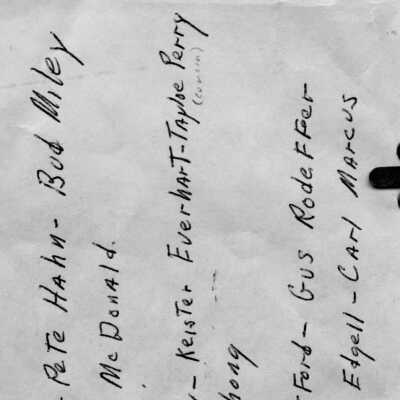 - Pete Hahn - Bud Miley
McDonald.
- Keister Everhart - Tayloe Perry
(cousin)
Ford - Gus Rodeffer
Edgell - Carl Marcus